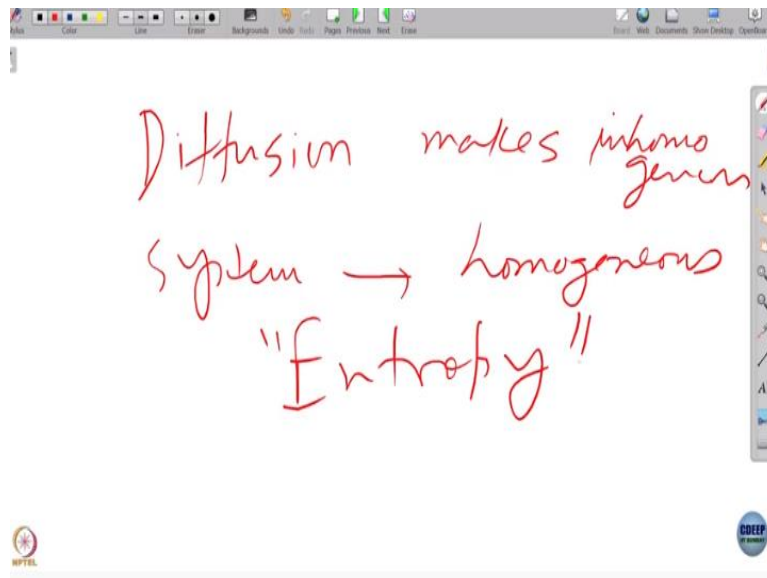 Stylus Color Line Eraser Backgrounds Undo Redo Pages Previous Next Erase Board Web Documents Show Desktop OpenBoard
Diffusion makes inhomo
geneous
system → homogeneous
"Entropy"
NPTEL
CDEEP
IIT BOMBAY